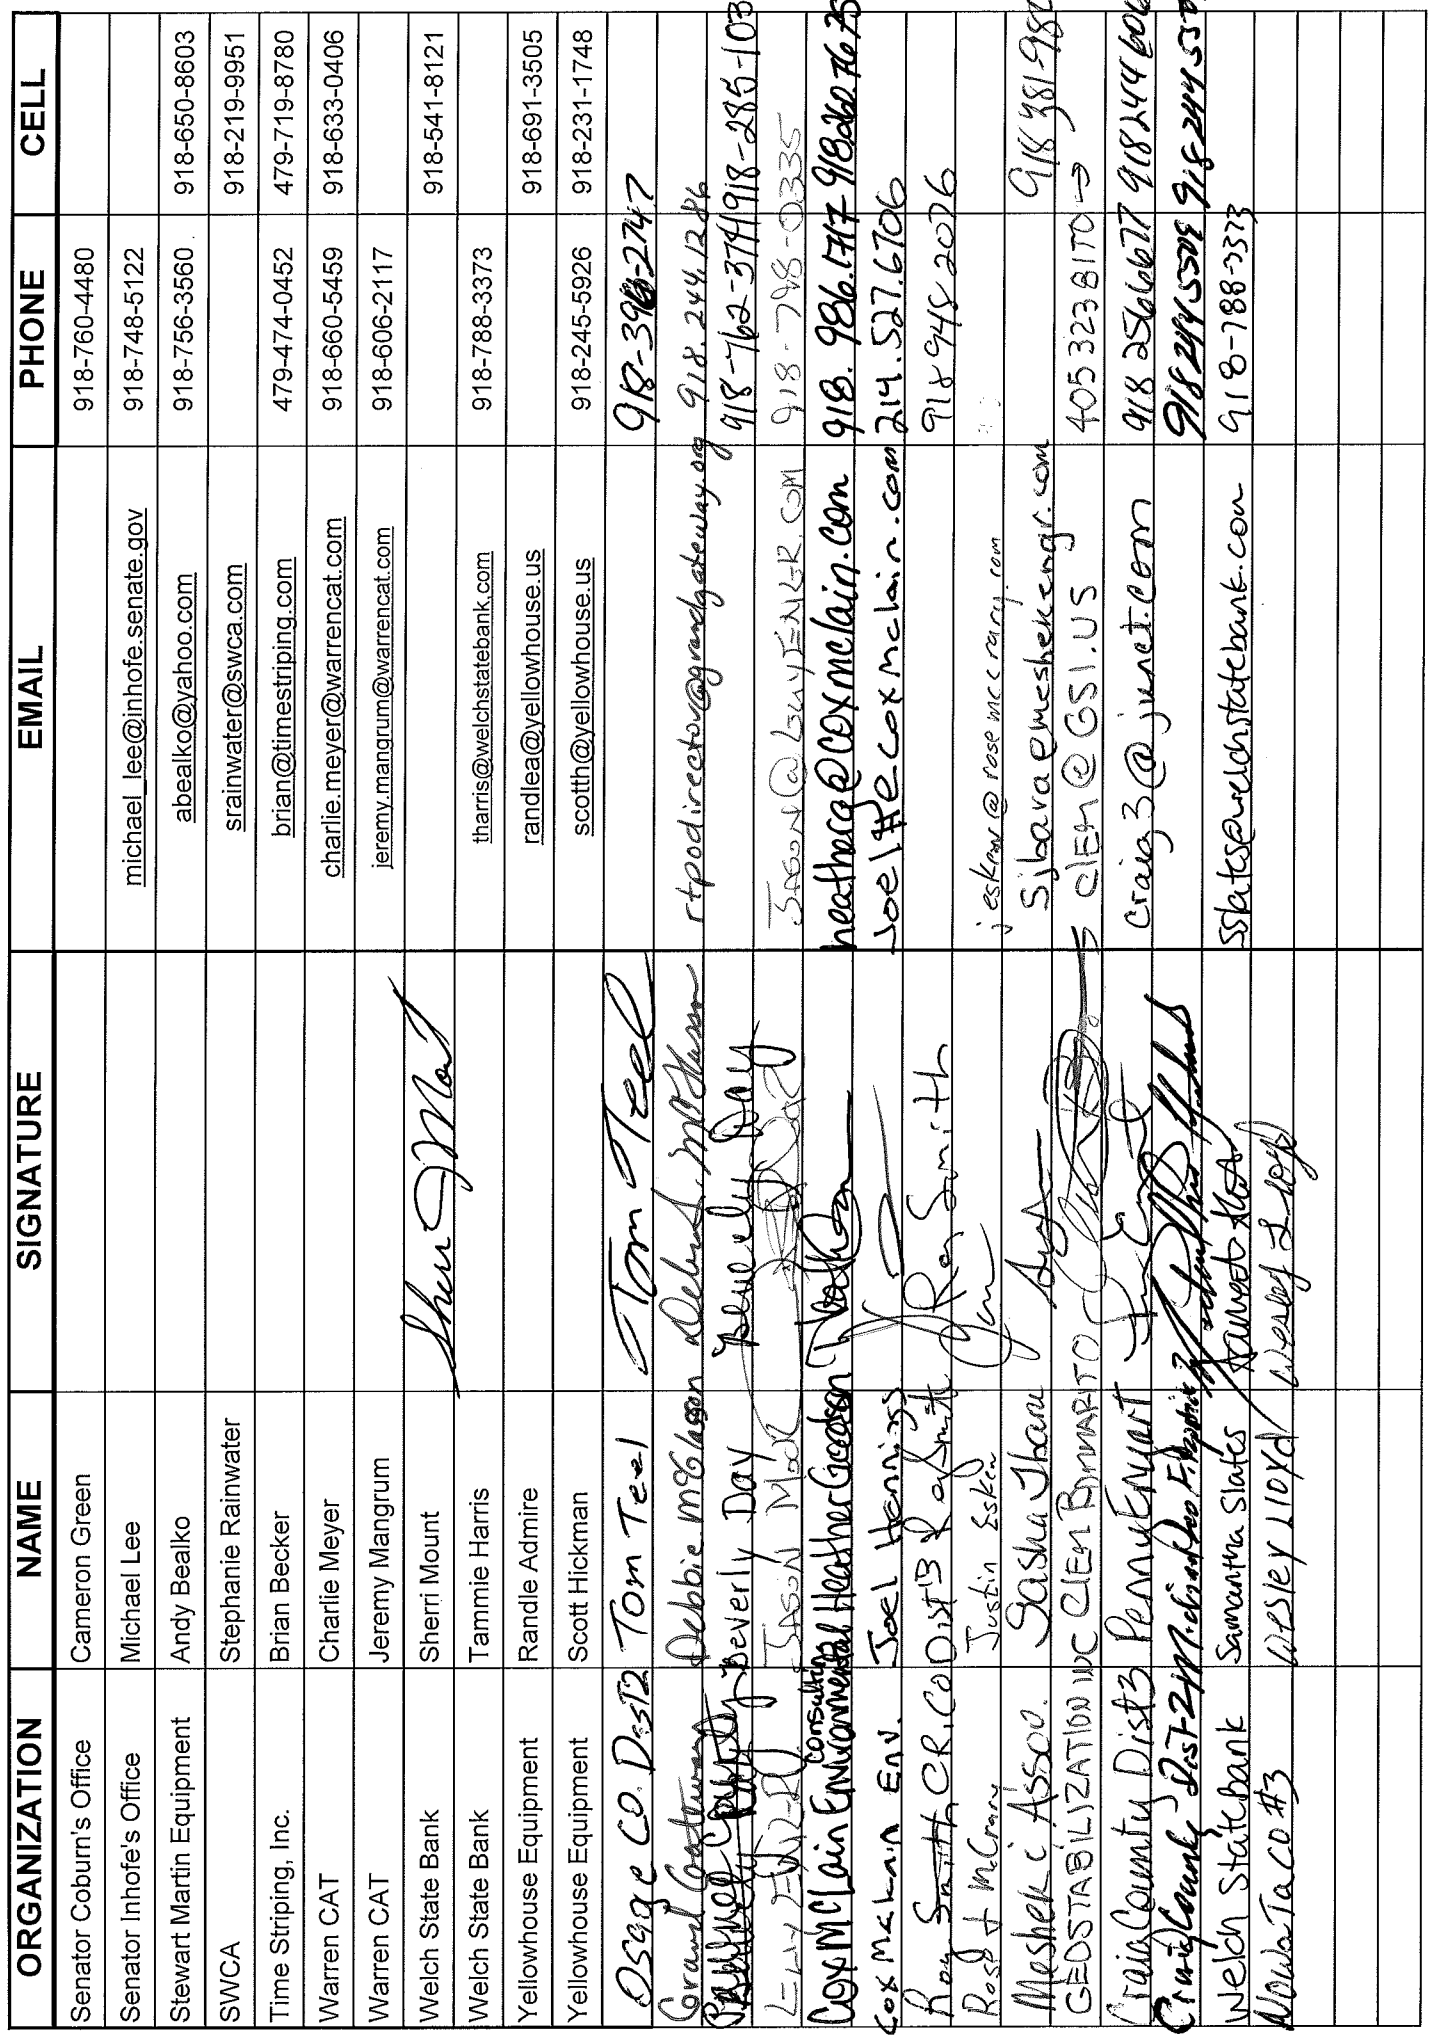 ORGANIZATION NAME SIGNATURE EMAIL PHONE CELL
Senator Coburn's Office Cameron Green 918-760-4480
Senator Inhofe's Office Michael Lee michael_lee@inhofe.senate.gov 918-748-5122
Stewart Martin Equipment Andy Bealko abealko@yahoo.com 918-756-3560 918-650-8603
SWCA Stephanie Rainwater srainwater@swca.com 918-219-9951
Time Striping, Inc. Brian Becker brian@timestriping.com 479-474-0452 479-719-8780
Warren CAT Charlie Meyer charlie.meyer@warrencat.com 918-660-5459 918-633-0406
Warren CAT Jeremy Mangrum jeremy.mangrum@warrencat.com 918-606-2117
Welch State Bank Sherri Mount Sherri Mount 918-541-8121
Welch State Bank Tammie Harris tharris@welchstatebank.com 918-788-3373
Yellowhouse Equipment Randle Admire randlea@yellowhouse.us 918-691-3505
Yellowhouse Equipment Scott Hickman scotth@yellowhouse.us 918-245-5926 918-231-1748
Osage CO. Dist 2 Tom Teel Tom Teel
Grand Gateway Debbie rtpodirector@grandgateway.org 918.244.1286
Beverly Day Beverly Day 918-762-3741
JASON 918-798-0335
Cox McLain Environmental Consulting Heather heatherg@coxmclain.com 918.986.1717 918.260.7675
Cox McLain Env. Joel Hennings JoelH@coxmclain.com 214.527.6706
Roy Smith CR.CO Dist 3 Roy Smith Roy Smith 918 948 2076
Rose & McCrary Justin Esken jesken@rosemccrary.com
Meshek & Assoc. Sasha sjbara@meshekengr.com
GEOSTABILIZATION INC CLEM BOMMARITO CLEM@GSI.US 405 323 BITO →
Craig County Dist 3 Penny Enyart craig3@junct.com 918 256 6677
Craig County Dist-2 918 244 5509
Welch State bank Samantha Slates sslates@welchstatebank.com 918-788-3373
Nowata CO #3 Wesley Loyd Wesley Loyd